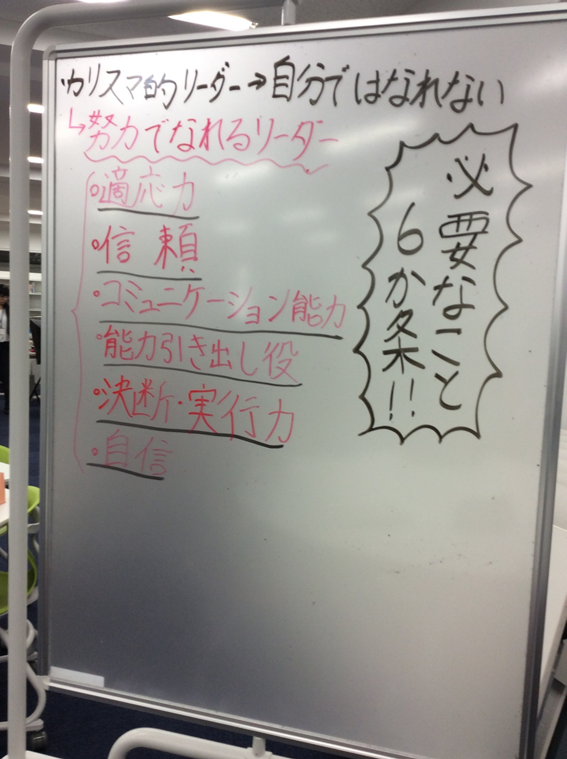 カリスマ的リーダー→自分ではなれない
↳努力でなれるリーダー
・適応力
・信頼
・コミュニケーション能力
・能力引き出し役
・決断・実行力
・自信
必要なこと
6か条!!